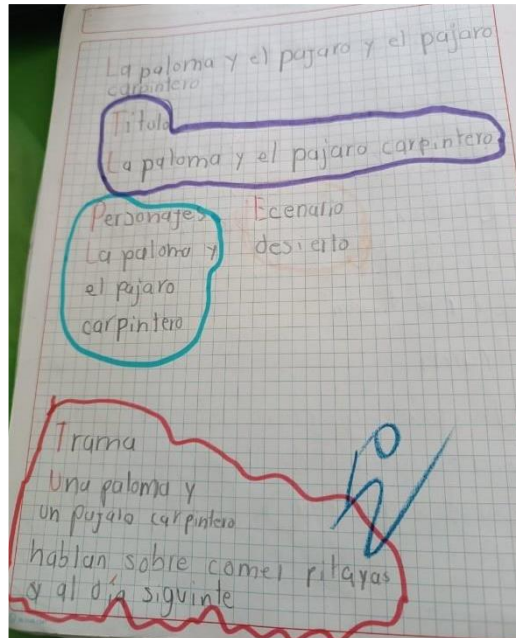 La paloma y el pajaro y el pajaro
carpintero
Titulo
La paloma y el pajaro carpintero
Personajes
La paloma y
el pajaro
carpintero
Ecenario
desierto
Trama
Una paloma y
un pajaro carpintero
hablan sobre comer pitayas
y al día siguinte